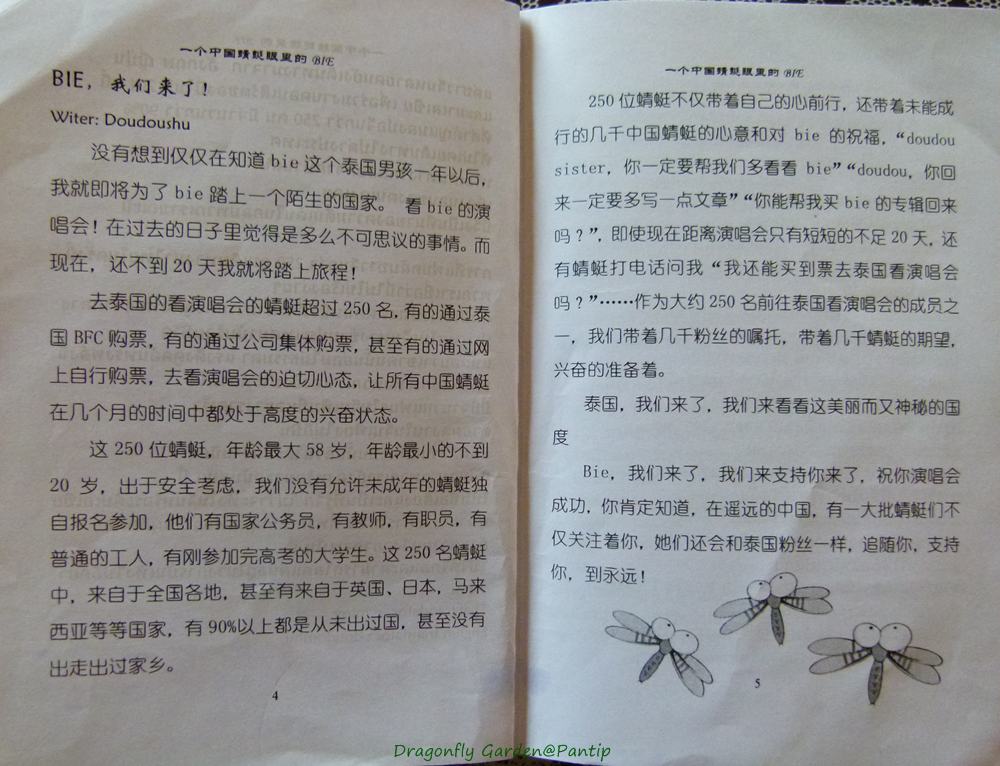 一个中国蜻蜓眼里的 BIE
BIE，我们来了！
Witer: Doudoushu
没有想到仅仅在知道 bie 这个泰国男孩一年以后，
我就即将为了 bie 踏上一个陌生的国家。 看 bie 的演
唱会！在过去的日子里觉得是多么不可思议的事情。而
现在，还不到 20 天我就将踏上旅程！
去泰国的看演唱会的蜻蜓超过 250 名，有的通过泰
国 BFC 购票，有的通过公司集体购票，甚至有的通过网
上自行购票，去看演唱会的迫切心态，让所有中国蜻蜓
在几个月的时间中都处于高度的兴奋状态。
这 250 位蜻蜓，年龄最大 58 岁，年龄最小的不到
20 岁，出于安全考虑，我们没有允许未成年的蜻蜓独
自报名参加，他们有国家公务员，有教师，有职员，有
普通的工人，有刚参加完高考的大学生。这 250 名蜻蜓
中，来自于全国各地，甚至有来自于英国、日本，马来
西亚等等国家，有 90%以上都是从未出过国，甚至没有
出走出过家乡。
4
一个中国蜻蜓眼里的 BIE
250 位蜻蜓不仅带着自己的心前行，还带着未能成
行的几千中国蜻蜓的心意和对 bie 的祝福，“doudou
sister，你一定要帮我们多看看 bie”“doudou，你回
来一定要多写一点文章”“你能帮我买 bie 的专辑回来
吗？”，即使现在距离演唱会只有短短的不足 20 天，还
有蜻蜓打电话问我“我还能买到票去泰国看演唱会
吗？”……作为大约 250 名前往泰国看演唱会的成员之
一，我们带着几千粉丝的嘱托，带着几千蜻蜓的期望，
兴奋的准备着。
泰国，我们来了，我们来看看这美丽而又神秘的国
度
Bie，我们来了，我们来支持你来了，祝你演唱会
成功，你肯定知道，在遥远的中国，有一大批蜻蜓们不
仅关注着你，她们还会和泰国粉丝一样，追随你，支持
你，到永远！
5
Dragonfly Garden@Pantip